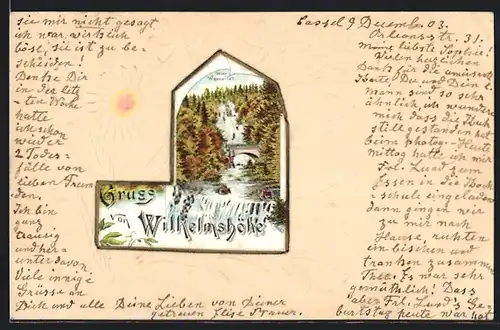 Cassel 9 Decemb. 03.
Orleansstr. 31.
meine liebste Sophie!
Vielen herzlichen
Dank für die amüsante
Karte, Du und Dein l.
Mann sind so sehr
ähnlich, ich wundere
mich dass die Kuh
still gestanden hat
beim photogr. - Heute
mittag hatte ich mir
Frl. Lund zum
Essen in die Koch
schule eingeladen
dann gingen wir
zu mir nach
Hause, ruhten
ein bischen und
tranken zusammen
Thee. Es war sehr
gemüthlich! Dass
aber Frl. Lund's Ge-
burtstag heute war hat
sie mir nicht gesagt
ich war wirklich
böse, sie ist zu be-
scheiden!
Denke Dir
in der letz
-ten Woche
hatte
ich schon
wieder
2 Todes-
fälle von
lieben Freun
den.
Ich bin
ganz
traurig
und her-
unter davon.
Viele innige
Grüsse an
Dich und alle Deine Lieben von Deiner
getreuen Elise
Neuer
Wasserfall
Gruss
von Wilhelmshöhe